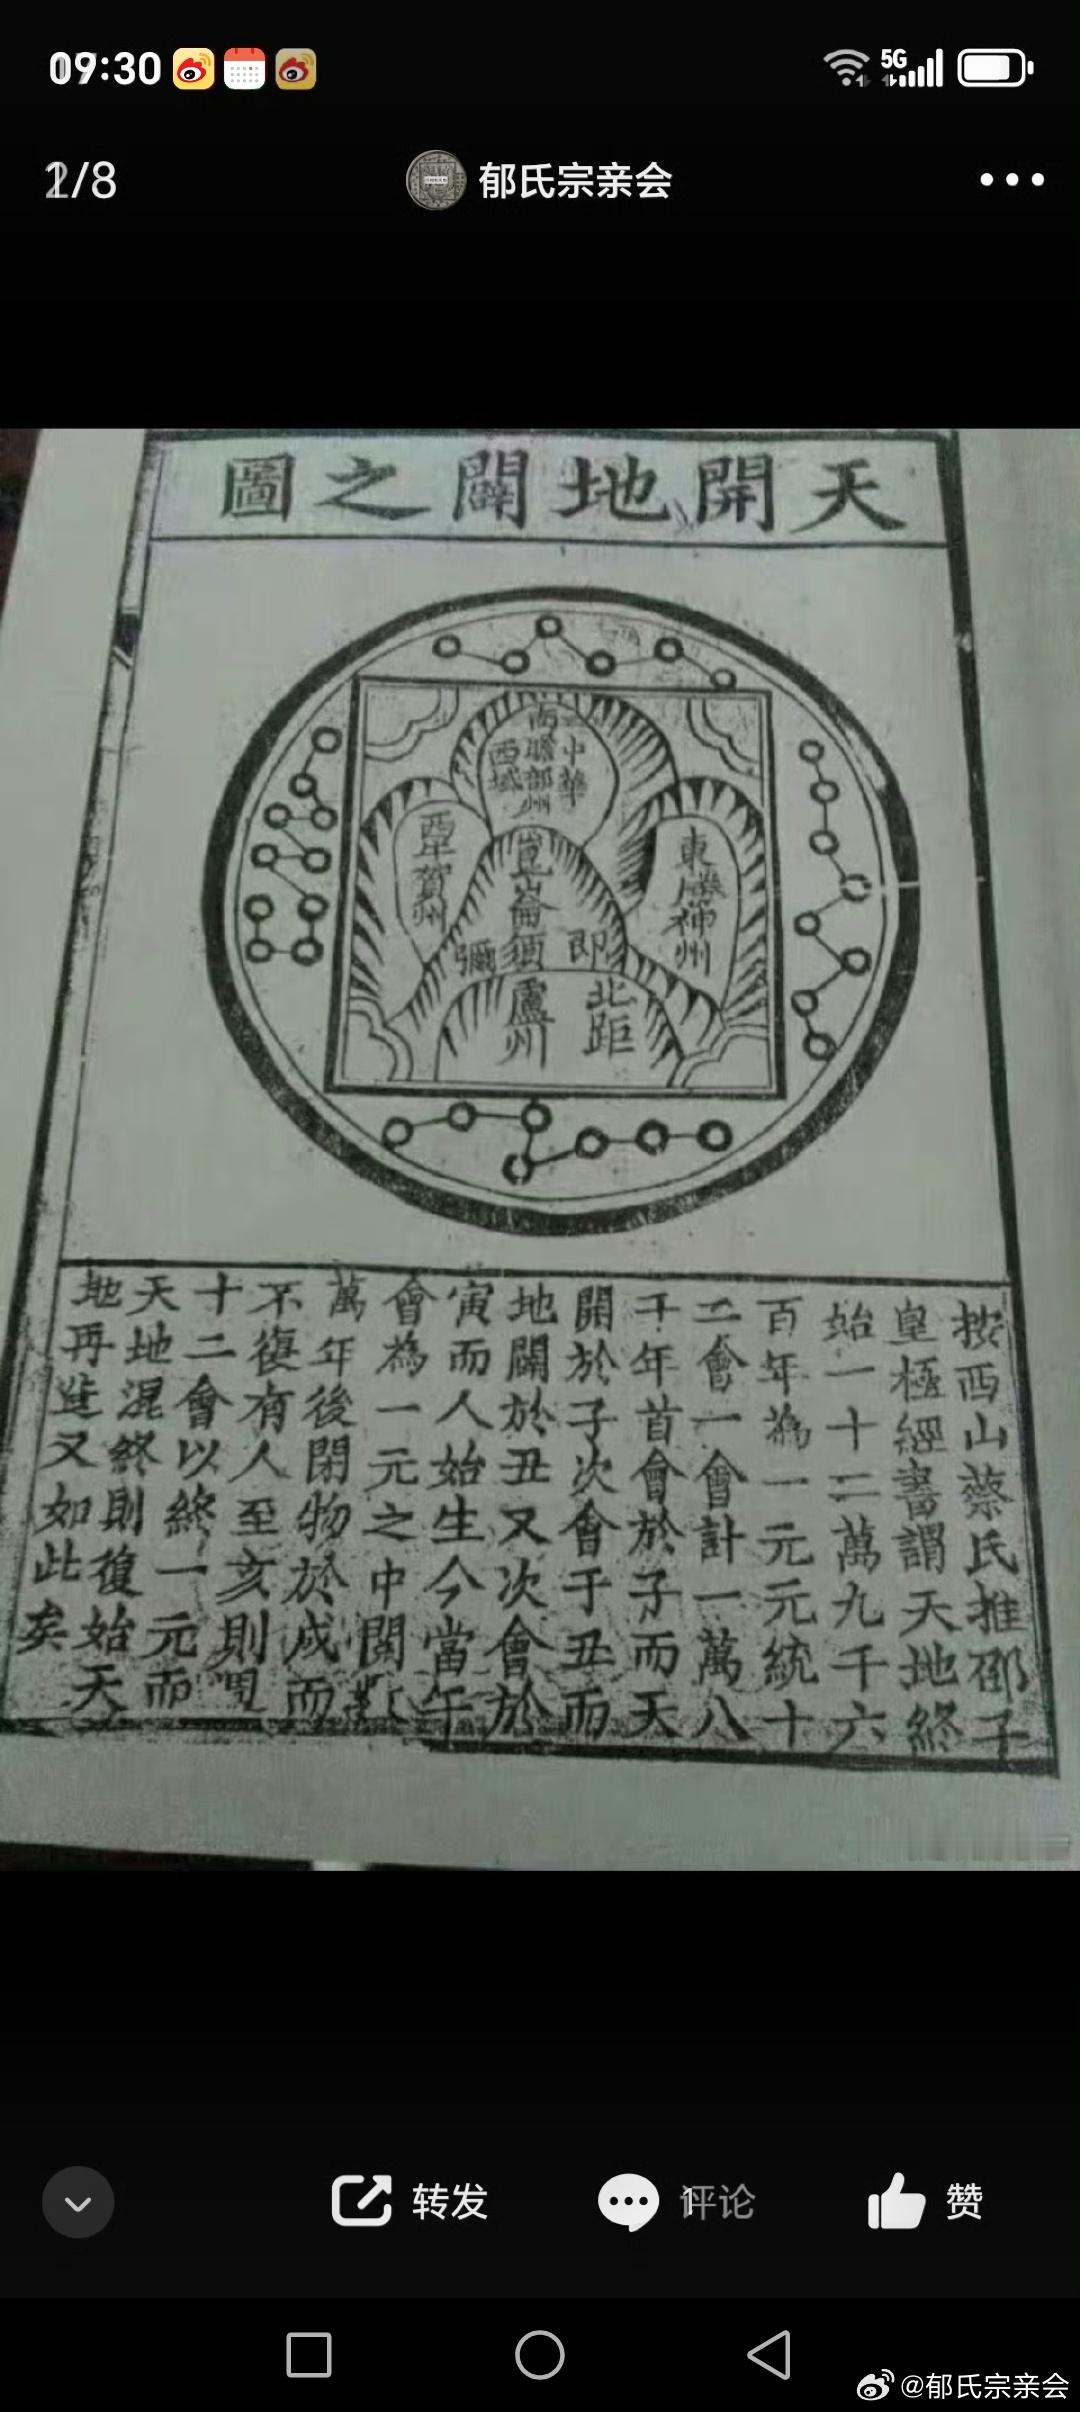 09:30
5G
/8
郁氏宗亲会
天開地闢之圖
中華
南贍部州
西域
東勝神州
崑崙
即須彌
西牛賀州
北距
盧州
按西山蔡氏推邵子
皇極經書謂天地終
始一十二萬九千六
百年為一元元統十
二會一會計一萬八
千年首會於子而天
開於子次會于丑而
地闢於丑又次會於
寅而人始生今當午
會為一元之中間
萬年後閉物於戌而
不復有人至亥則
十二會以終一元而
天地混終則復始天
地再造又如此矣
转发
评论
赞
@郁氏宗亲会